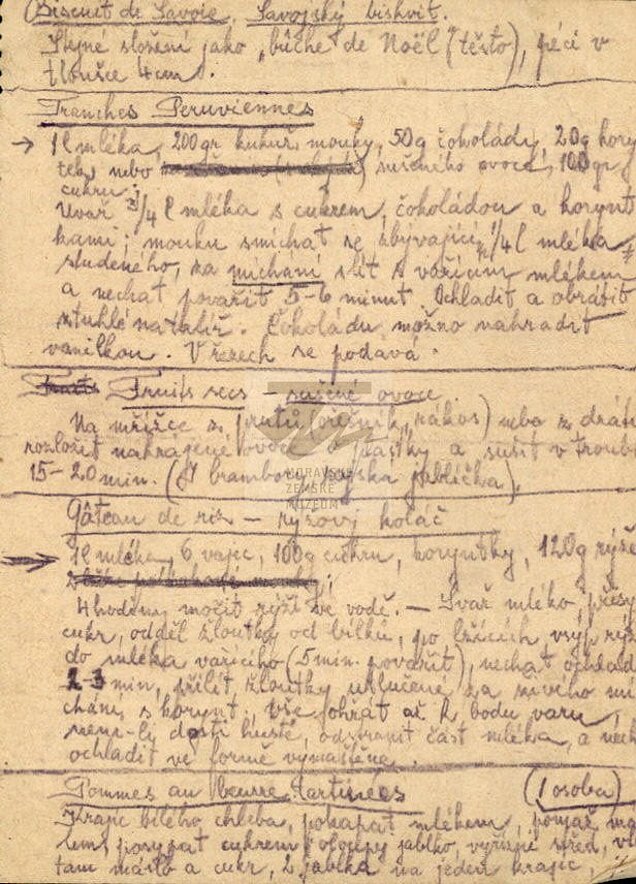 Biscuit de Savoie, Savojský biskvit.
Stejné složení jako "bûche de Noël (těsto), péci v
tloušce 4cm).
Tranches Peruviennes
→ 1l mléka, 200gr kukuř. mouky, 50g čokolády, 20g kory
tek, nebo sušeného ovoce, 100gr
cukru;
Uvař 3/4 l mléka s cukrem, čokoládou a korynt
kami; mouku smíchat se zbývající 1/4 l mléka
studeného, za míchání slít s vařícím mlékem
a nechat povařit 5-6 minut. Ochladit a obrátit
ztuhlé na talíř. Čokoládu možno nahradit
vanilkou. V řezech se podává.
Fruits secs - sušené ovoce
Na mřížce z prutů (ořešník, rákos) nebo z drátu
rozložit nakrájené ovoce a plátky a sušit v troubě
15-20 min. ( brambory, jablíčka).
MORAVSKÉ
ZEMSKÉ
MUZEUM
Gâteau de riz - rýžový koláč
1l mléka, 6 vajec, 100g cukru, koryntky, 120g rýže
4 hodiny močit rýži ve vodě. - Svař mléko,
cukr, odděl žloutky od bílků, po lžících vsyp rý
do mléka vařícího (5 min. povařit), nechat ochlad
2-3 min, přilít žloutky utlučené za mí
chání, s korynt. Vše ohřát až k bodu varu,
není-ly dosti husté, odstranit část mléka, a nech
ochladit ve formě vymaštěné.
Pommes au Beurre Tartinées (1 osoba)
Krajíc bílého chleba, pokapat mlékem, pomaž má
lem, posypat cukrem, oloupej jablko, vyřízni střed,
tam máslo a cukr, 2 jablka na jeden krajíc,